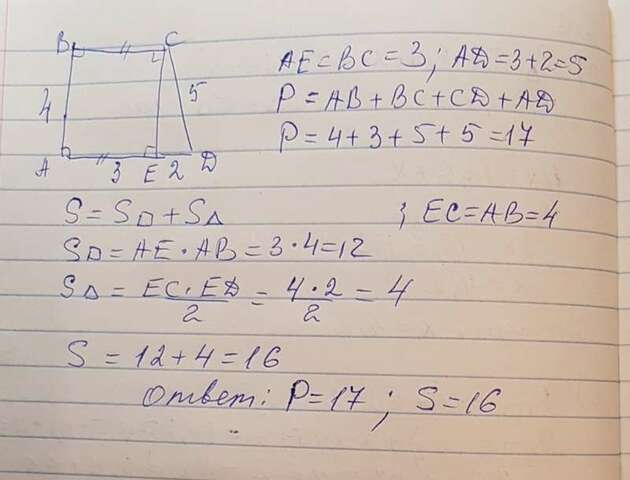 B C
4 5
A 3 E 2 D
AE=BC=3; AD=3+2=5
P=AB+BC+CD+AD
P=4+3+5+5=17
S=S□+S△ ; EC=AB=4
S□=AE·AB=3·4=12
S△=EC·ED/2=4·2/2=4
S=12+4=16
Ответ: P=17; S=16